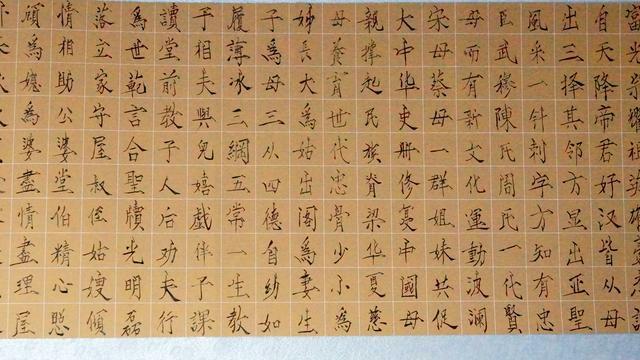 自天降帝君好汉皆从母
出三择其邻方显出亚聖
風采一针刺字方知有忠
臣武穆陳氏周氏一代賢
母而有新文化運動波瀾
宋母蔡母一群姐妹共促
大中华史册修中國母
親撑起民族脊梁华夏慈
母養育世代忠骨少小為
婦長大為姑出閣為妻生
子為母三从四德自幼如
履薄冰三綱五常一生教
子相夫與兒嬉戲伴子課
讀堂前教子人后劝夫行
為世範言合聖牘光明磊
落立家守屋叔侄姑嫂傾
情相助公婆堂伯精心照
為媳為婆盡情盡理屋